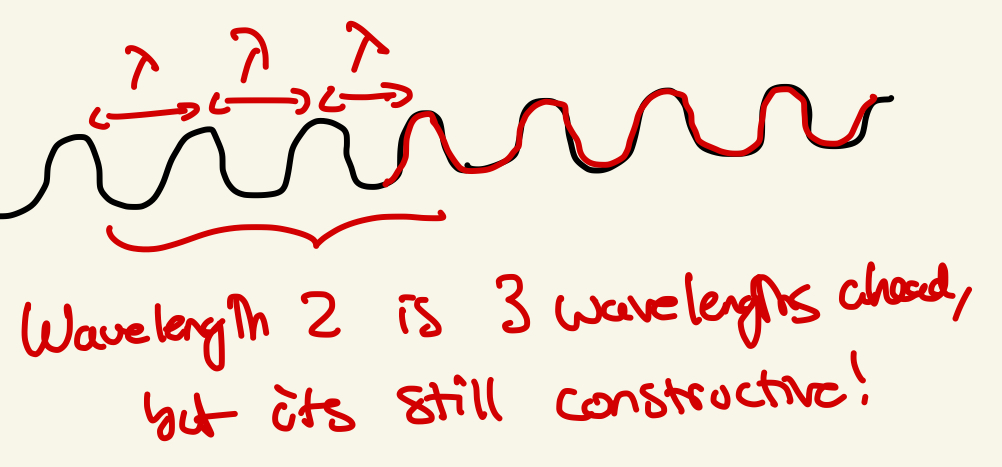 λ λ λ
Wavelength 2 is 3 wavelengths ahead,
but its still constructive!